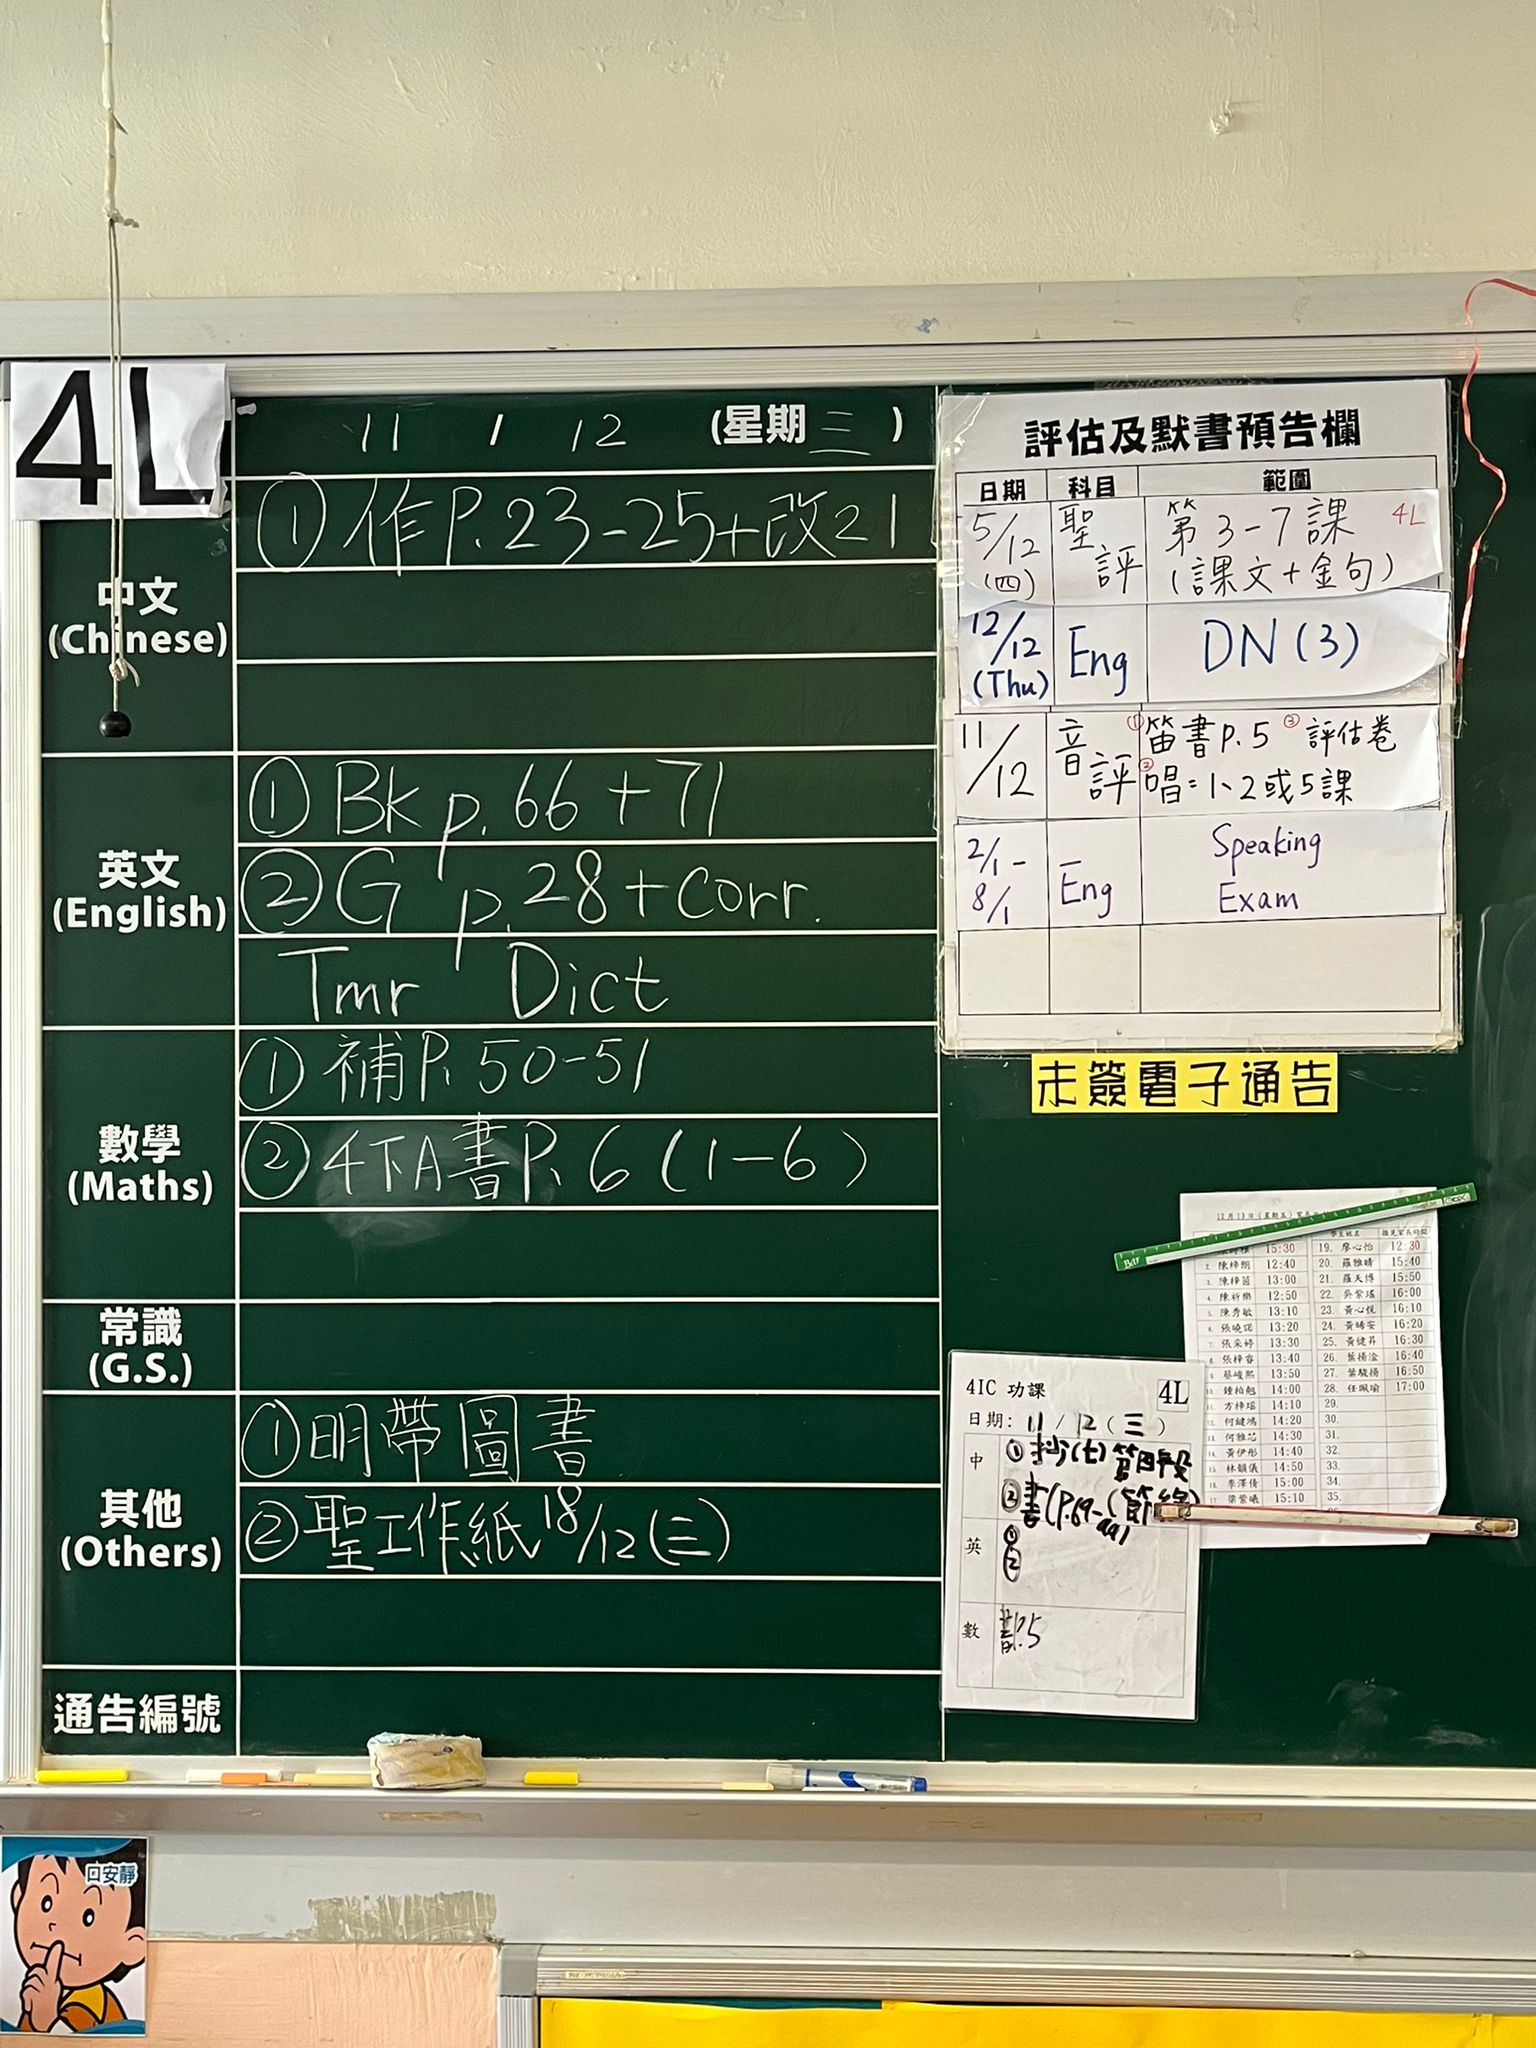 4L
11 / 12 (星期三)
中文
(Chinese)
① 作P.23-25+改21
英文
(English)
① Bk p.66+71
② G p.28+corr.
Tmr Dict
數學
(Maths)
① 補P.50-51
② 4下A書P.6(1-6)
常識
(G.S.)
其他
(Others)
① 明帶圖書
② 聖工作紙18/12(三)
通告編號
評估及默書預告欄
日期 科目 範圍
5/12 (四) 聖評 第3-7課 (課文+金句) 4L
12/12 (Thu) Eng DN(3)
11/12 音評 ①笛書P.5 ③評估卷
②唱=1、2或5課
2/1-8/1 Eng Speaking Exam
未簽電子通告
12月13日(星期五)
學生姓名
15:30
陳梓朗 12:40
陳梓茵 13:00
陳祈樂 12:50
陳秀敏 13:10
張曉諾 13:20
張采婷 13:30
張梓睿 13:40
蔡峻熙 13:50
鍾柏勉 14:00
方梓瑤 14:10
何鍵鴻 14:20
何雅芯 14:30
黃伊彤 14:40
林韻儀 14:50
李澤倩 15:00
梁紫曦 15:10
19. 廖心怡 12:30
20. 羅雅晴 15:40
21. 羅天博 15:50
22. 吳紫瑤 16:00
23. 黃心悅 16:10
24. 黃晞安 16:20
25. 黃健昇 16:30
26. 葉揚淦 16:40
27. 葉駿揚 16:50
28. 任珮瑜 17:00
29.
30.
31.
32.
33.
34.
35.
4IC 功課 4L
日期: 11 / 12 (三)
中 ① 抄(七)第四段
② 書(P.69-
英 ①
②
數 書P.5
口安靜